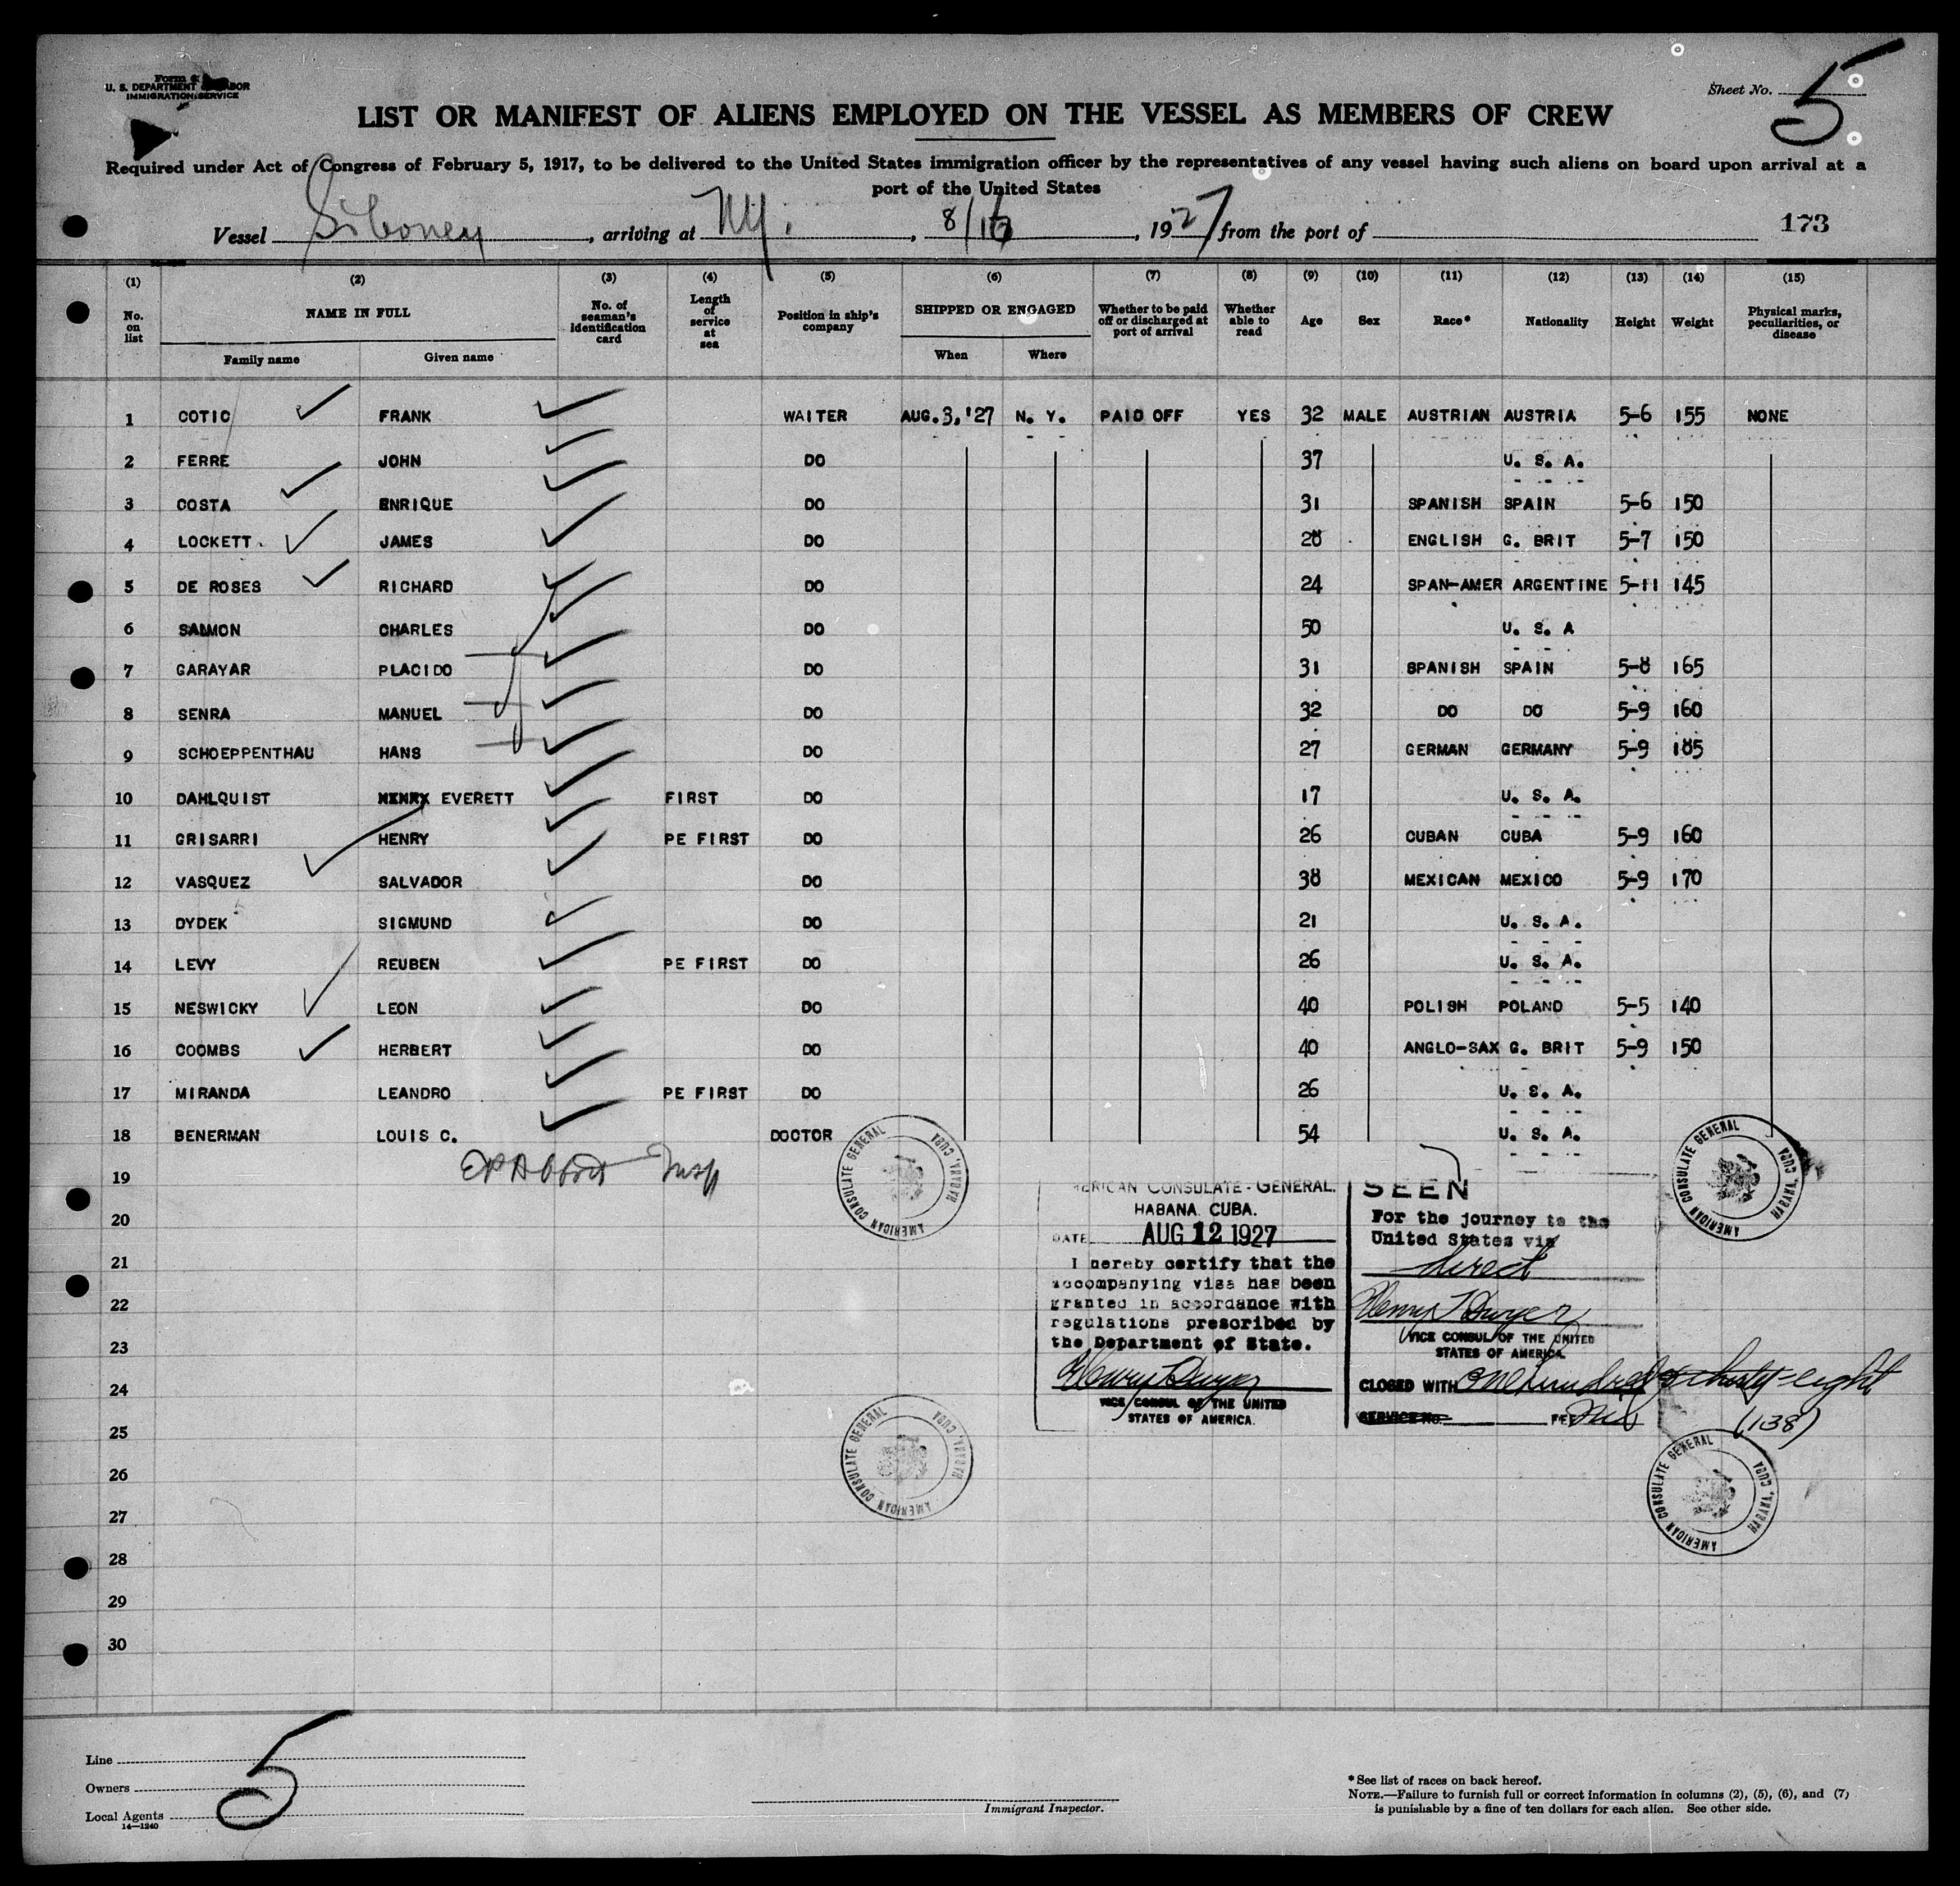 Form
U. S. DEPARTMENT OF LABOR
IMMIGRATION SERVICE
Sheet No. 5
LIST OR MANIFEST OF ALIENS EMPLOYED ON THE VESSEL AS MEMBERS OF CREW
Required under Act of Congress of February 5, 1917, to be delivered to the United States immigration officer by the representatives of any vessel having such aliens on board upon arrival at a
port of the United States
Vessel Siboney, arriving at N.Y., 8/16, 1927 from the port of 173
(1) (2) (3) (4) (5) (6) (7) (8) (9) (10) (11) (12) (13) (14) (15)
No. on list NAME IN FULL Family name Given name No. of seaman's identification card Length of service at sea Position in ship's company SHIPPED OR ENGAGED When Where Whether to be paid off or discharged at port of arrival Whether able to read Age Sex Race* Nationality Height Weight Physical marks, peculiarities, or disease
1 COTIC FRANK WAITER AUG.3,'27 N. Y. PAID OFF YES 32 MALE AUSTRIAN AUSTRIA 5-6 155 NONE
2 FERRE JOHN DO 37 U. S. A.
3 COSTA ENRIQUE DO 31 SPANISH SPAIN 5-6 150
4 LOCKETT JAMES DO 28 ENGLISH G. BRIT 5-7 150
5 DE ROSES RICHARD DO 24 SPAN-AMER ARGENTINE 5-11 145
6 SALMON CHARLES DO 50 U. S. A
7 GARAYAR PLACIDO DO 31 SPANISH SPAIN 5-8 165
8 SENRA MANUEL DO 32 DO DO 5-9 160
9 SCHOEPPENTHAU HANS DO 27 GERMAN GERMANY 5-9 185
10 DAHLQUIST HENRY EVERETT FIRST DO 17 U. S. A.
11 GRISARRI HENRY PE FIRST DO 26 CUBAN CUBA 5-9 160
12 VASQUEZ SALVADOR DO 38 MEXICAN MEXICO 5-9 170
13 DYDEK SIGMUND DO 21 U. S. A.
14 LEVY REUBEN PE FIRST DO 26 U. S. A.
15 NESWICKY LEON DO 40 POLISH POLAND 5-5 140
16 COOMBS HERBERT DO 40 ANGLO-SAX G. BRIT 5-9 150
17 MIRANDA LEANDRO PE FIRST DO 26 U. S. A.
18 BENERMAN LOUIS C. DOCTOR 54 U. S. A.
19
20
21
22
23
24
25
26
27
28
29
30
Insp
AMERICAN CONSULATE GENERAL HABANA, CUBA
AMERICAN CONSULATE-GENERAL.
HABANA. CUBA.
DATE AUG 12 1927
I hereby certify that the
accompanying visa has been
granted in accordance with
regulations prescribed by
the Department of State.
Henry T Dwyer
VICE CONSUL OF THE UNITED
STATES OF AMERICA.
SEEN
For the journey to the
United States via
direct
Henry T Dwyer
VICE CONSUL OF THE UNITED
STATES OF AMERICA.
CLOSED WITH one hundred & thirty-eight
SERVICE NO. FEE Nil (138)
AMERICAN CONSULATE GENERAL HABANA, CUBA
AMERICAN CONSULATE GENERAL HABANA, CUBA
AMERICAN CONSULATE GENERAL HABANA, CUBA
5
Line
Owners
Local Agents
14—1240
Immigrant Inspector.
*See list of races on back hereof.
NOTE.—Failure to furnish full or correct information in columns (2), (5), (6), and (7)
is punishable by a fine of ten dollars for each alien. See other side.